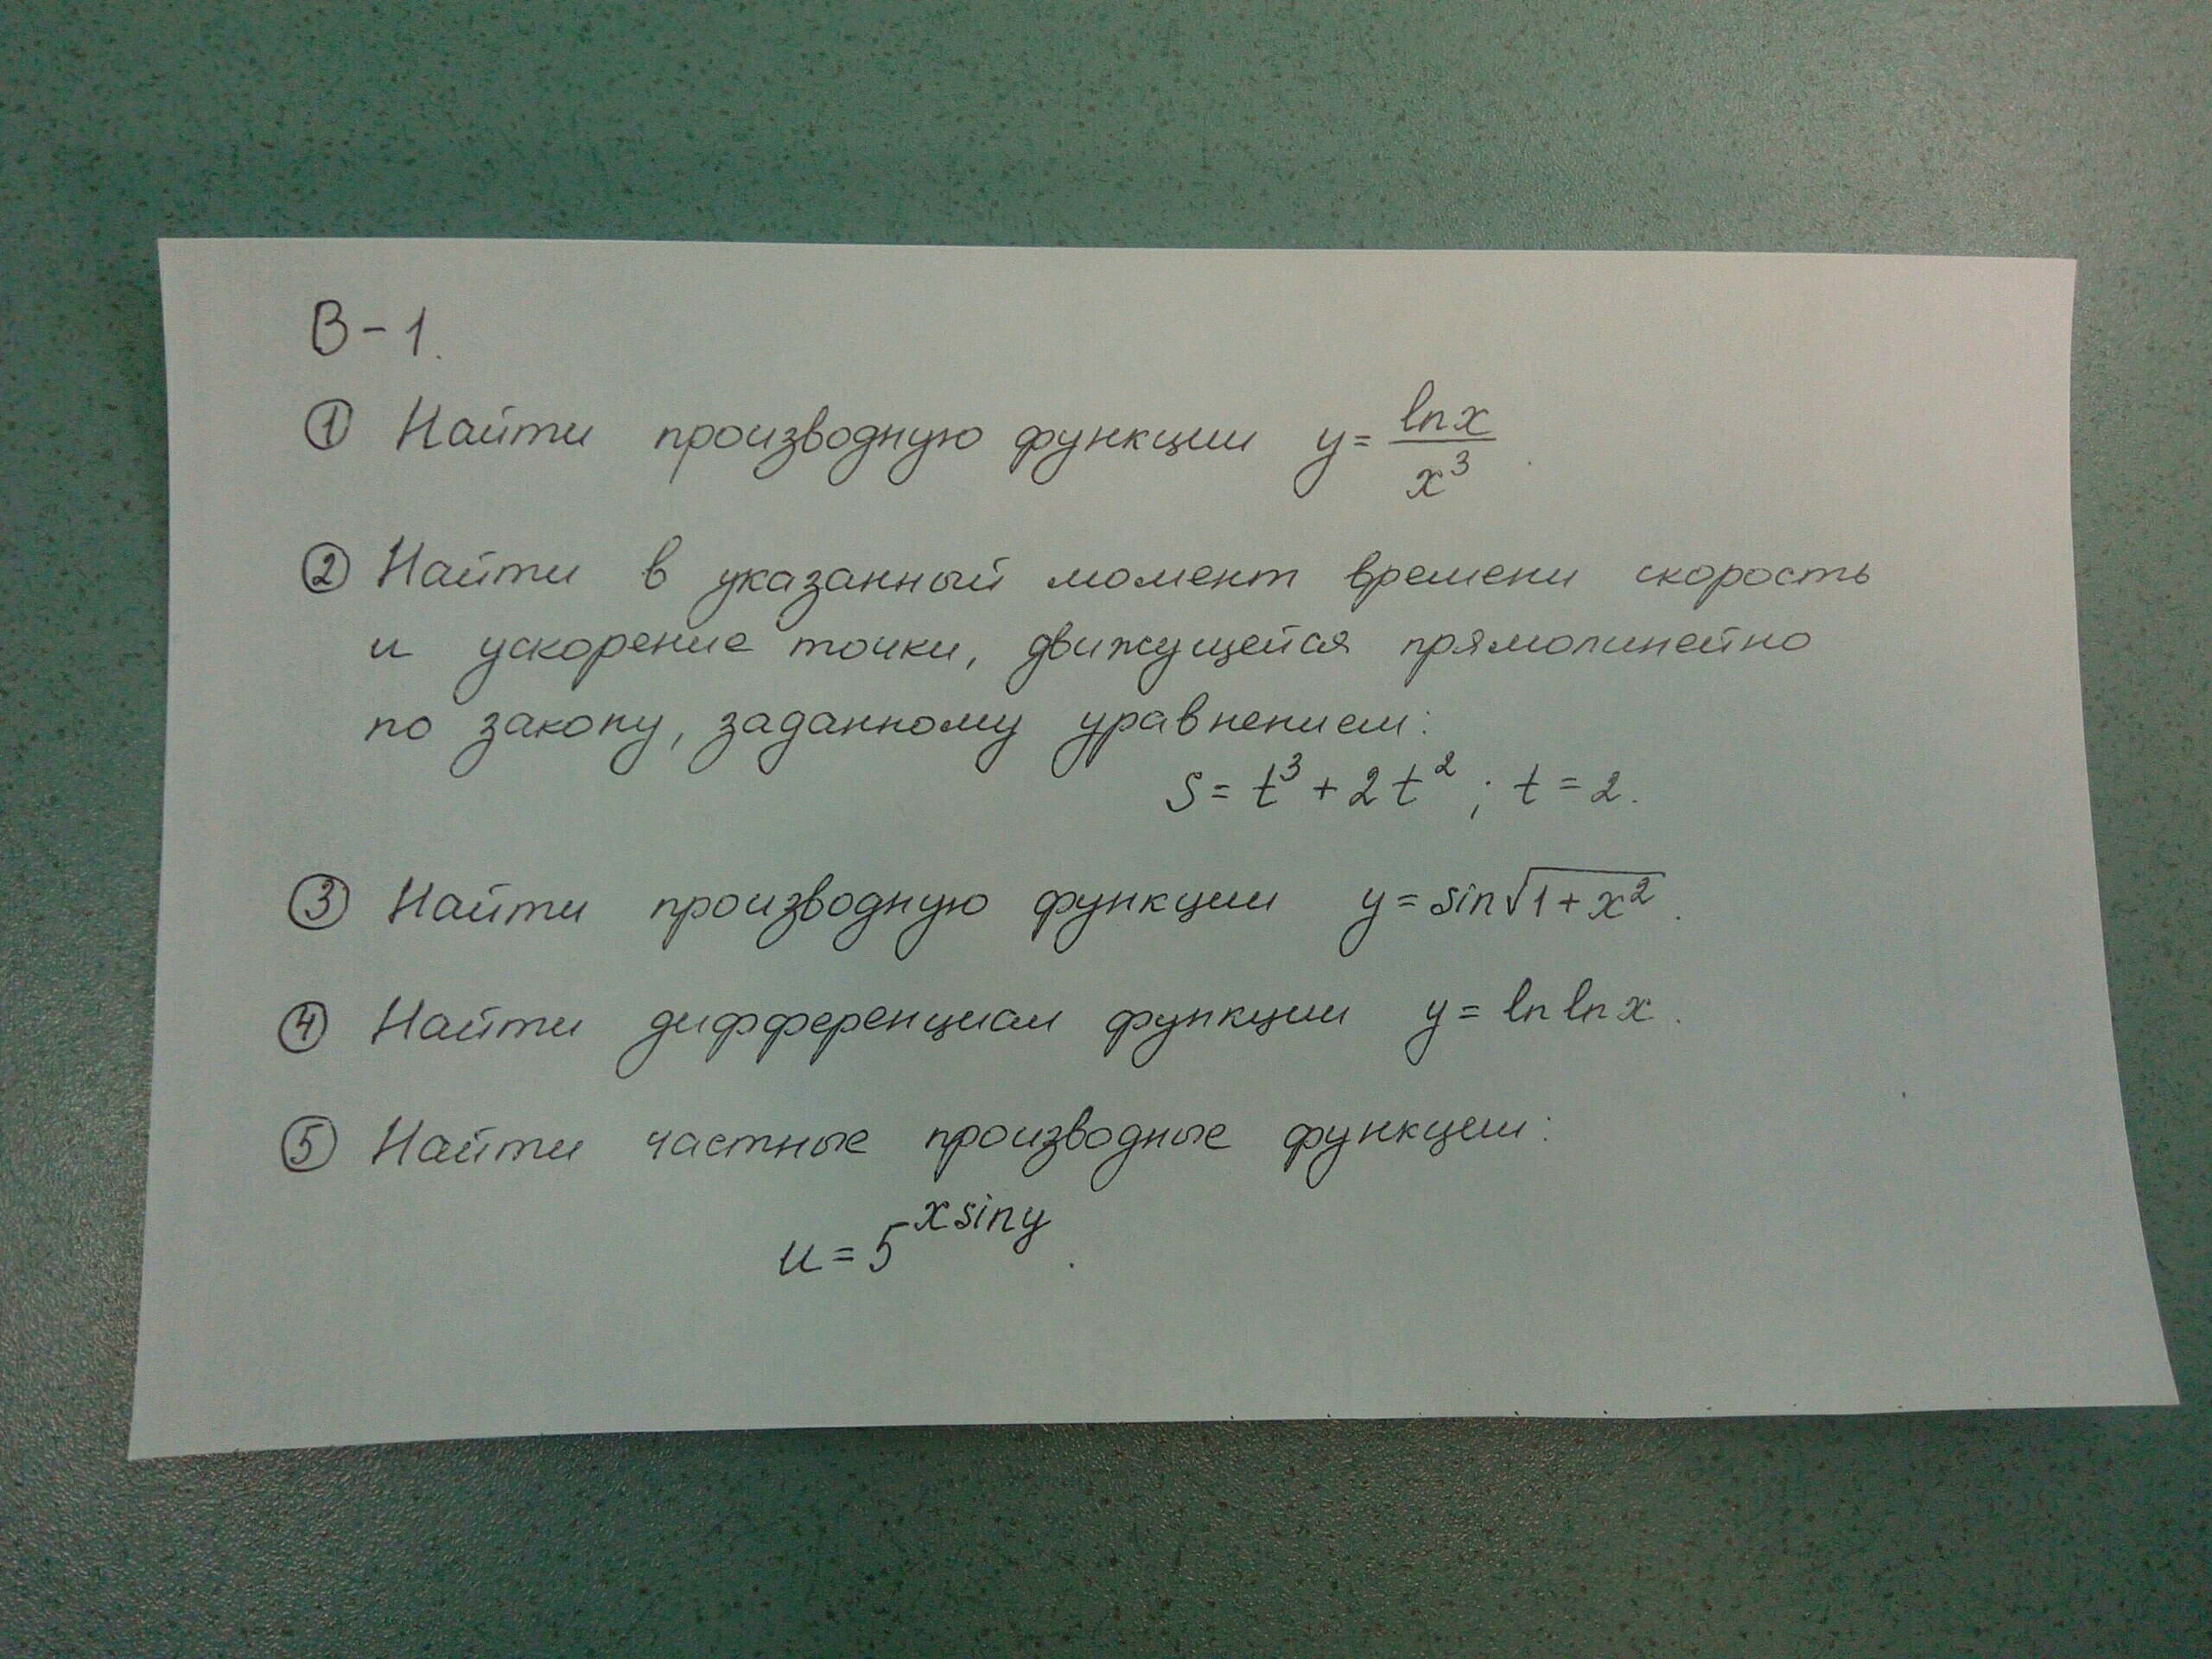 В-1.
① Найти производную функции y = lnx / x³.
② Найти в указанный момент времени скорость
и ускорение точки, движущейся прямолинейно
по закону, заданному уравнением:
S = t³ + 2t² ; t = 2.
③ Найти производную функции y = sin√(1 + x²).
④ Найти дифференциал функции y = ln ln x.
⑤ Найти частные производные функции:
u = 5^(x sin y).